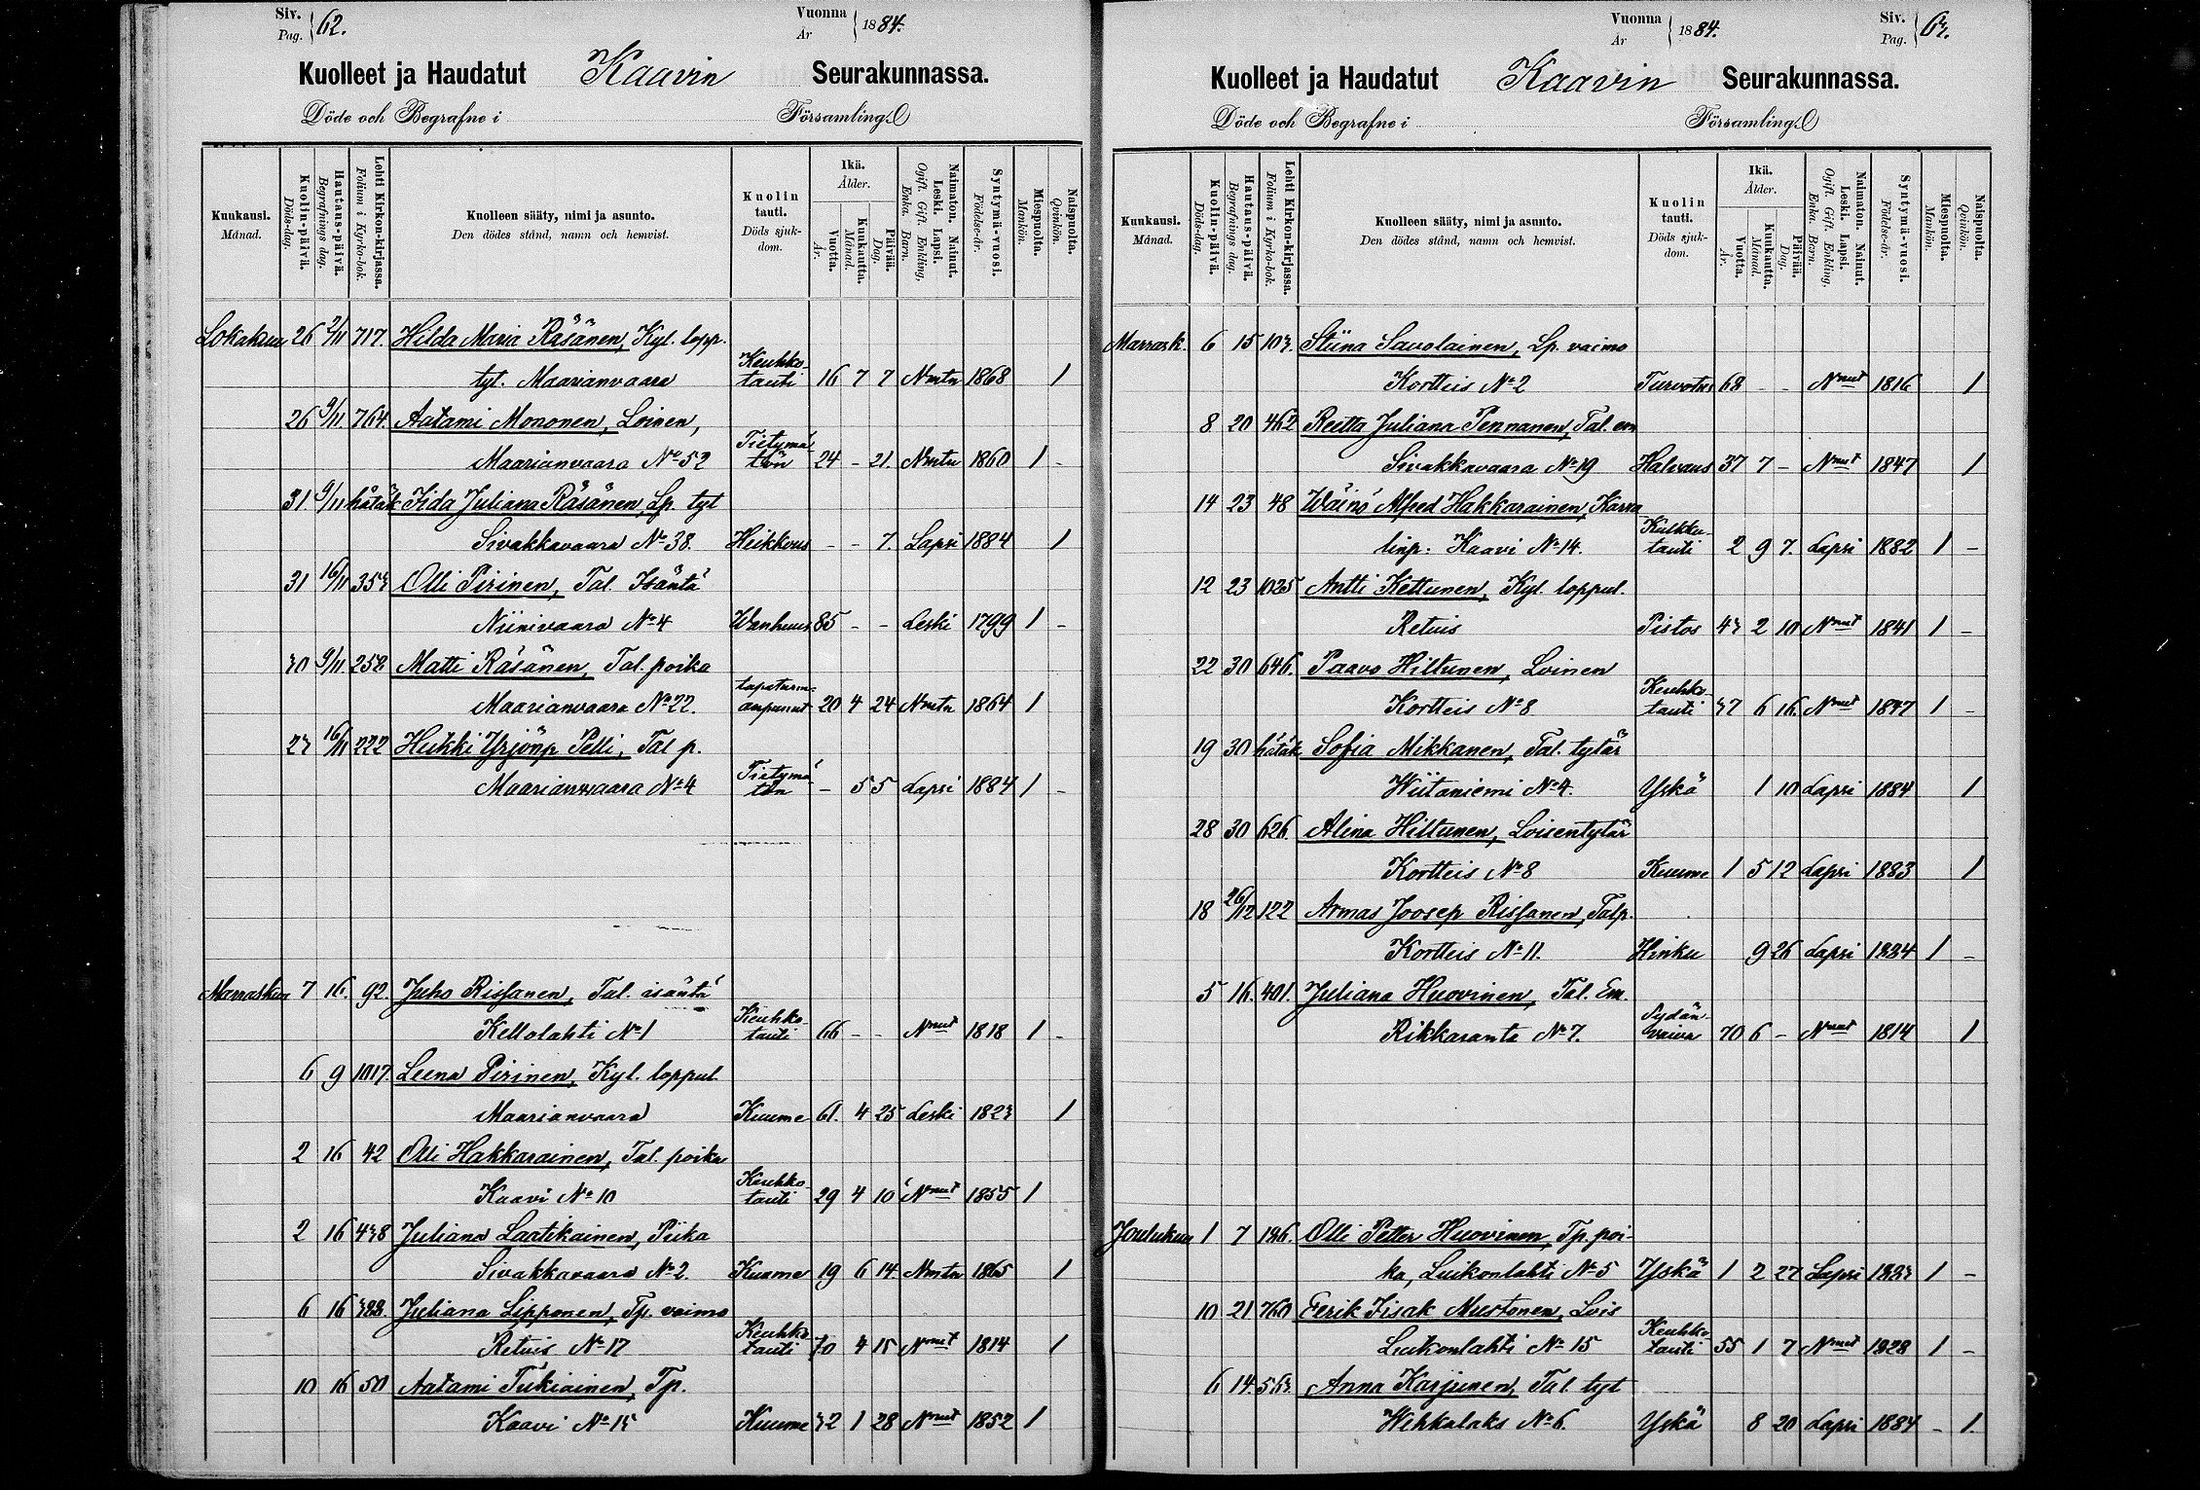 Siv. Pag. 62. Vuonna År 1884.
Kuolleet ja Haudatut Kaavin Seurakunnassa.
Döde och Begrafne i Församling.
Kuukausi. Månad. Kuolin-päivä. Döds-dag. Hautaus-päivä. Begrafnings dag. Lehti Kirkon-kirjassa. Folium i Kyrko-bok. Kuolleen sääty, nimi ja asunto. Den dödes stånd, namn och hemvist. Kuolin tauti. Döds sjukdom. Ikä. Ålder. Vuotta. År. Kuukautta. Månad. Päivää. Dag. Naimaton. Nainut. Leski. Lapsi. Ogift. Gift. Enkling, Enka. Barn. Syntymä-vuosi. Födelse-år. Miespuolta. Mankön. Naispuolta. Qvinkön.
Lokakuu 26 2/11 717. Hilda Maria Räsänen, Kyl. lopp.
tyt. Maarianvaara Keuhko-tauti 16 7 7 Nmtn 1868 1
26 9/11 764 Aatami Mononen, Loinen,
Maarianvaara No 52 Tietymätön 24 - 21. Nmtn 1860 1 -
31 9/11 hätäk Iida Juliana Räsänen, Lp. tyt
Sivakkavaara No 38. Heikkous - - 7. Lapsi 1884 1
31 16/11 353 Olli Pirinen, Tal. Isäntä
Niinivaara No 4 Wanhuus 85 - - Leski 1799 1 -
30 9/11 258 Matti Räsänen, Tal. poika
Maarianvaara No 22. tapaturm. ampunut 20 4 24 Nmtn 1864 1
23 16/11 222 Heikki Yrjönp Pelli, Tal p.
Maarianvaara No 4 Tietymätön - 5 5 Lapsi 1884 1 -
Marraskuu 7 16. 92. Juho Rissanen, Tal. isäntä
Kellolahti No 1 Keuhko-tauti 66 - - Nnut 1818 1 -
6 9 1017. Leena Pirinen, Kyl. loppul
Maarianvaara Kuume 61. 4 25 Leski 1823 1
2 16 42 Olli Hakkarainen, Tal. poika
Kaavi No 10 Keuhko-tauti 29 4 10 Nnut 1855 1
2 16 438 Juliana Laatikainen, Piika
Sivakkavaara No 2. Kuume 19 6 14. Nmtn 1865 1
6 16 388 Juliana Lipponen, Tp. vaimo
Retuis No 17 Keuhko-tauti 70 4 15 Nnut 1814 1
10 16 50 Aatami Tukiainen, Tp.
Kaavi No 15 Kuume 32 1 28 Nnut 1852 1
Siv. Pag. 63. Vuonna År 1884.
Kuolleet ja Haudatut Kaavin Seurakunnassa.
Döde och Begrafne i Församling.
Kuukausi. Månad. Kuolin-päivä. Döds-dag. Hautaus-päivä. Begrafnings dag. Lehti Kirkon-kirjassa. Folium i Kyrko-bok. Kuolleen sääty, nimi ja asunto. Den dödes stånd, namn och hemvist. Kuolin tauti. Döds sjukdom. Ikä. Ålder. Vuotta. År. Kuukautta. Månad. Päivää. Dag. Naimaton. Nainut. Leski. Lapsi. Ogift. Gift. Enkling, Enka. Barn. Syntymä-vuosi. Födelse-år. Miespuolta. Mankön. Naispuolta. Qvinkön.
Marrask. 6 15 103. Stiina Savolainen, Lp. vaimo
Kortteis No 2 Turvotus 68 - - Nnut 1816 1
8 20 462 Reetta Juliana Pennanen, Tal. em
Sivakkavaara No 19 Halvaus 37 7 - Nnut 1847 1
14 23 48 Wäinö Alfred Hakkarainen, Karva
linp: Kaavi No 14. Kulkku-tauti 2 9 7. Lapsi 1882 1 -
12 23 1025 Antti Kettunen, Kyl. loppul.
Retuis Pistos 43 2 10 Nnut 1841 1 -
22 30 646. Paavo Hiltunen, Loinen
Kortteis No 8 Keuhko-tauti 37 6 16. Nnut 1847 1 -
19 30 hätäk Sofia Mikkanen, Tal. tytär
Wiitaniemi No 4. Yskä 1 10 Lapsi 1884 1
28 30 626 Alina Hiltunen, Loisentytär
Kortteis No 8 Kuume 1 5 12 Lapsi 1883 1
18 26/12 122 Armas Joosep Rissanen, Talp.
Kortteis No 11. Hinku 9 26 Lapsi 1884 1 -
5 16. 401. Juliana Huovinen, Tal. Em.
Rikkaranta No 7. Sydän-vaiva 70 6 - Nnut 1814 1
Joulukuu 1 7 186. Olli Petter Huovinen, Tp. poi-
ka, Luikonlahti No 5 Yskä 1 2 27 Lapsi 1883 1 -
10 21 760 Eerik Iisak Mustonen, Lois
Luikonlahti No 15 Keuhko-tauti 55 1 7 Nnut 1828 1 -
6 14 563 Anna Karjunen, Tal. tyt
Wehkalaks No 6. Yskä 8 20 Lapsi 1884 - 1.